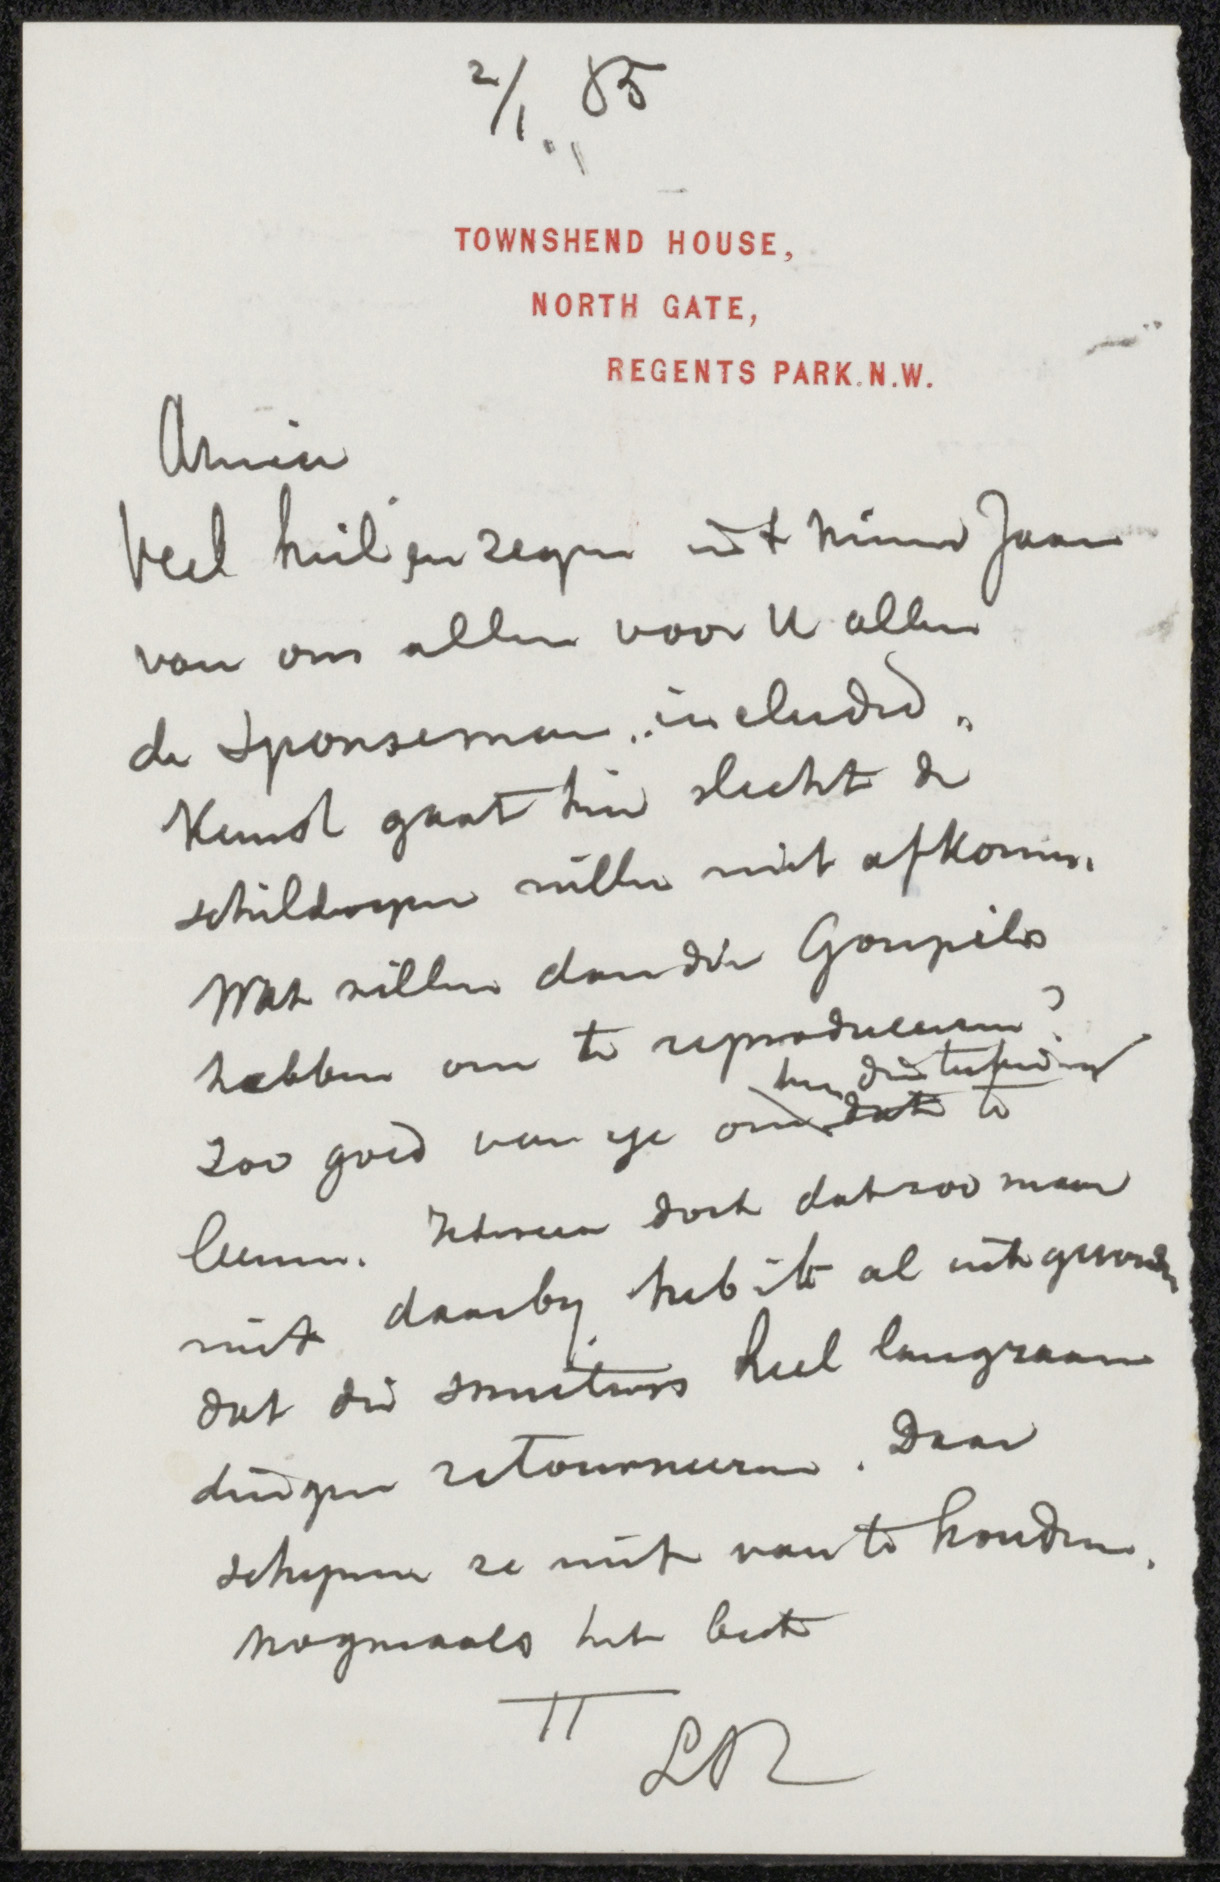 2/1 85
TOWNSHEND HOUSE,
NORTH GATE,
REGENTS PARK. N.W.
Amice
Veel heil en zegen in 't Nieuw Jaar
van ons allen voor U allen
de Sponseman „included„
Kunst gaat hier slecht de
schilderyen willen niet afkomen.
Wat willen dan die Goupils
hebben om te reproduceeren?
hun die
zoo goed van je om dat te
leenen. Iedereen doet dat zoo maar
niet daarby heb ik al uitgevonden
dat die snuiters heel langzaam
dingen retourneeren. Daar
schynen ze niet van te houden.
Nogmaals het beste
TT
LAT